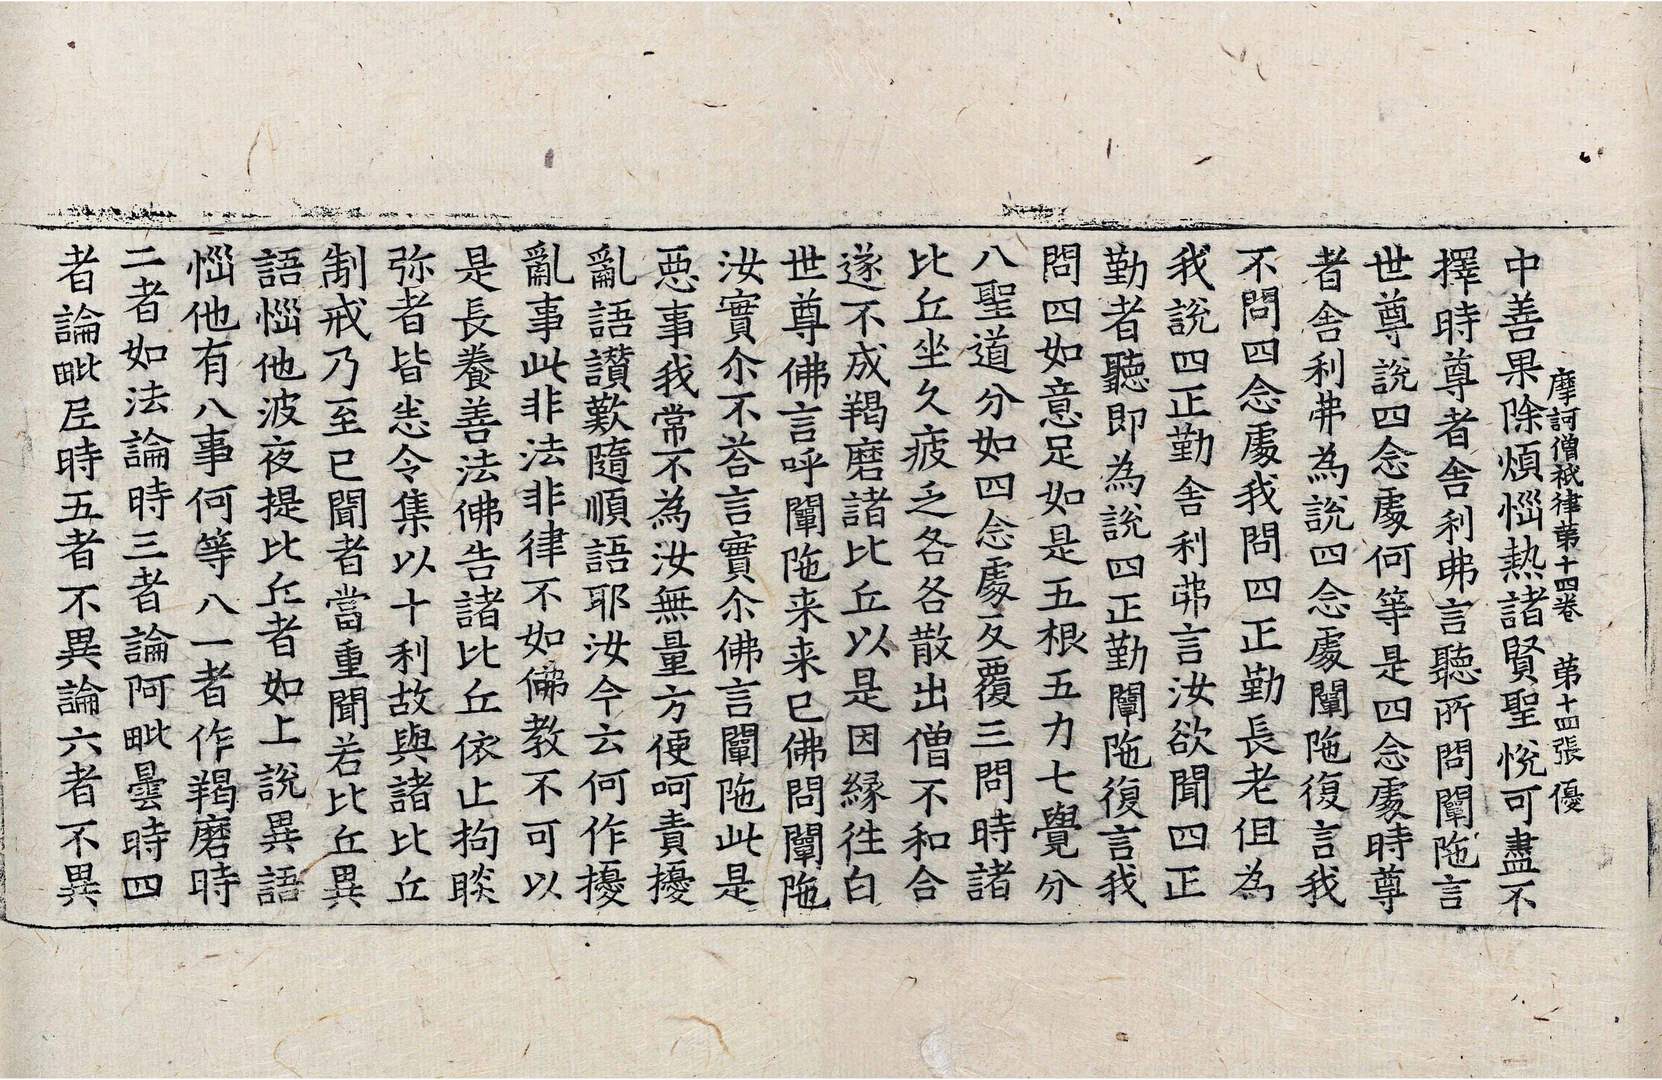 摩訶僧祇律第十四卷 第十四張 優
中善果除煩惱熱諸賢聖悅可盡不
擇時尊者舍利弗言聽所問闡陁言
世尊說四念處何等是四念處時尊
者舍利弗為說四念處闡陁復言我
不問四念處我問四正勤長老但為
我說四正勤舍利弗言汝欲聞四正
勤者聽即為說四正勤闡陁復言我
問四如意足如是五根五力七覺分
八聖道分如四念處反覆三問時諸
比丘坐久疲乏各各散出僧不和合
遂不成羯磨諸比丘以是因緣往白
世尊佛言呼闡陁来来已佛問闡陁
汝實尒不荅言實尒佛言闡陁此是
惡事我常不為汝無量方便呵責擾
亂語讚歎隨順語耶汝今云何作擾
亂事此非法非律不如佛教不可以
是長養善法佛告諸比丘依止拘睒
弥者皆悉令集以十利故與諸比丘
制戒乃至已聞者當重聞若比丘異
語惱他波夜提比丘者如上說異語
惱他有八事何等八一者作羯磨時
二者如法論時三者論阿毗曇時四
者論毗尼時五者不異論六者不異